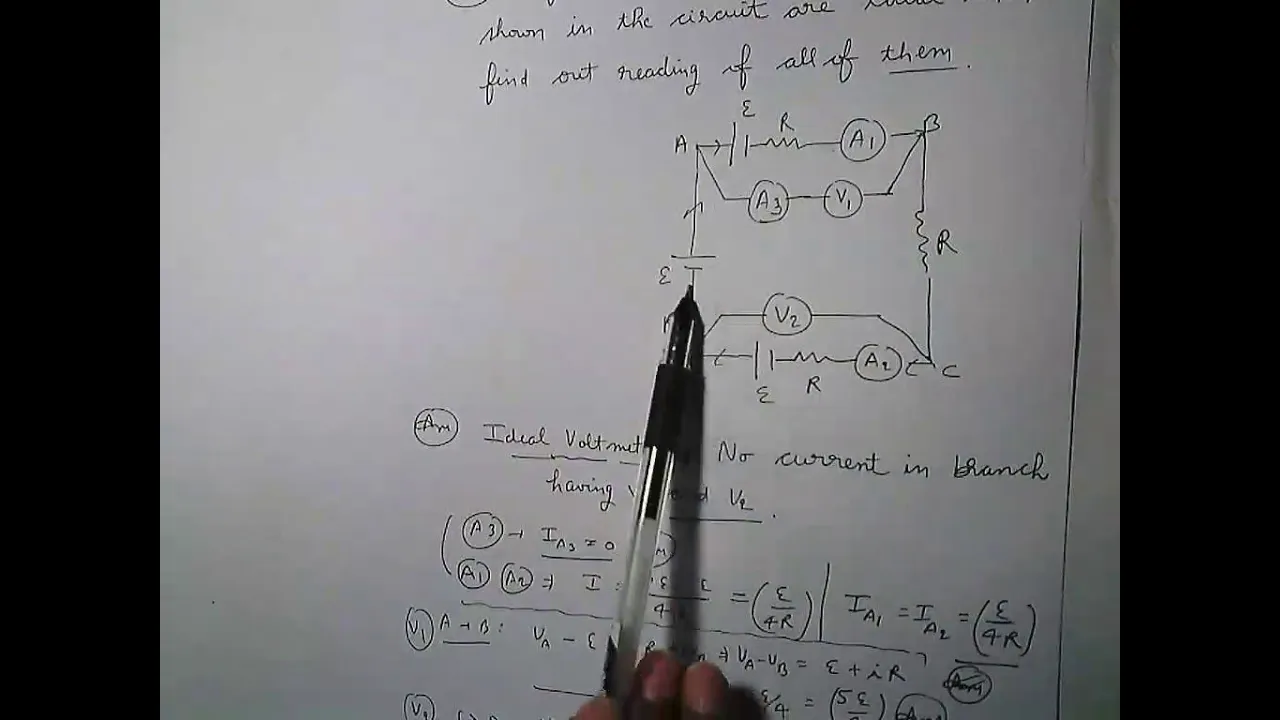 shown in the circuit are
find out reading of all of them.
ε
R
A
A1
B
A3
V1
R
ε
V2
A2
C
R
ε
Ans
Ideal Voltmet No current in branch
having V2.
A3 → I_A3 = 0
A1 A2 ⇒ I = = (ε/4R) | I_A1 = I_A2 = (ε/4R)
V1 A → B : V_A - ε ⇒ V_A - V_B = ε + iR
Ans
ε/4 = (5ε